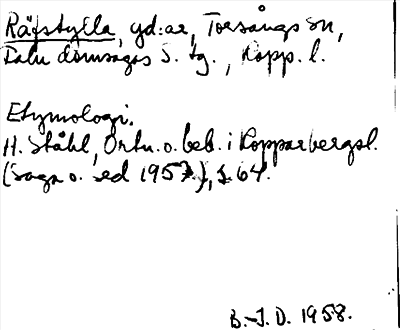 Räfstylla, gd:ar, Torsångs sn,
Falu domsagas S. tg., Kopp. l.
Etymologi.
H. Ståhl, Ortn. o. beb. i Kopparbergsl.
(Saga o. sed 1957), s. 64.
B.-J. D. 1958.